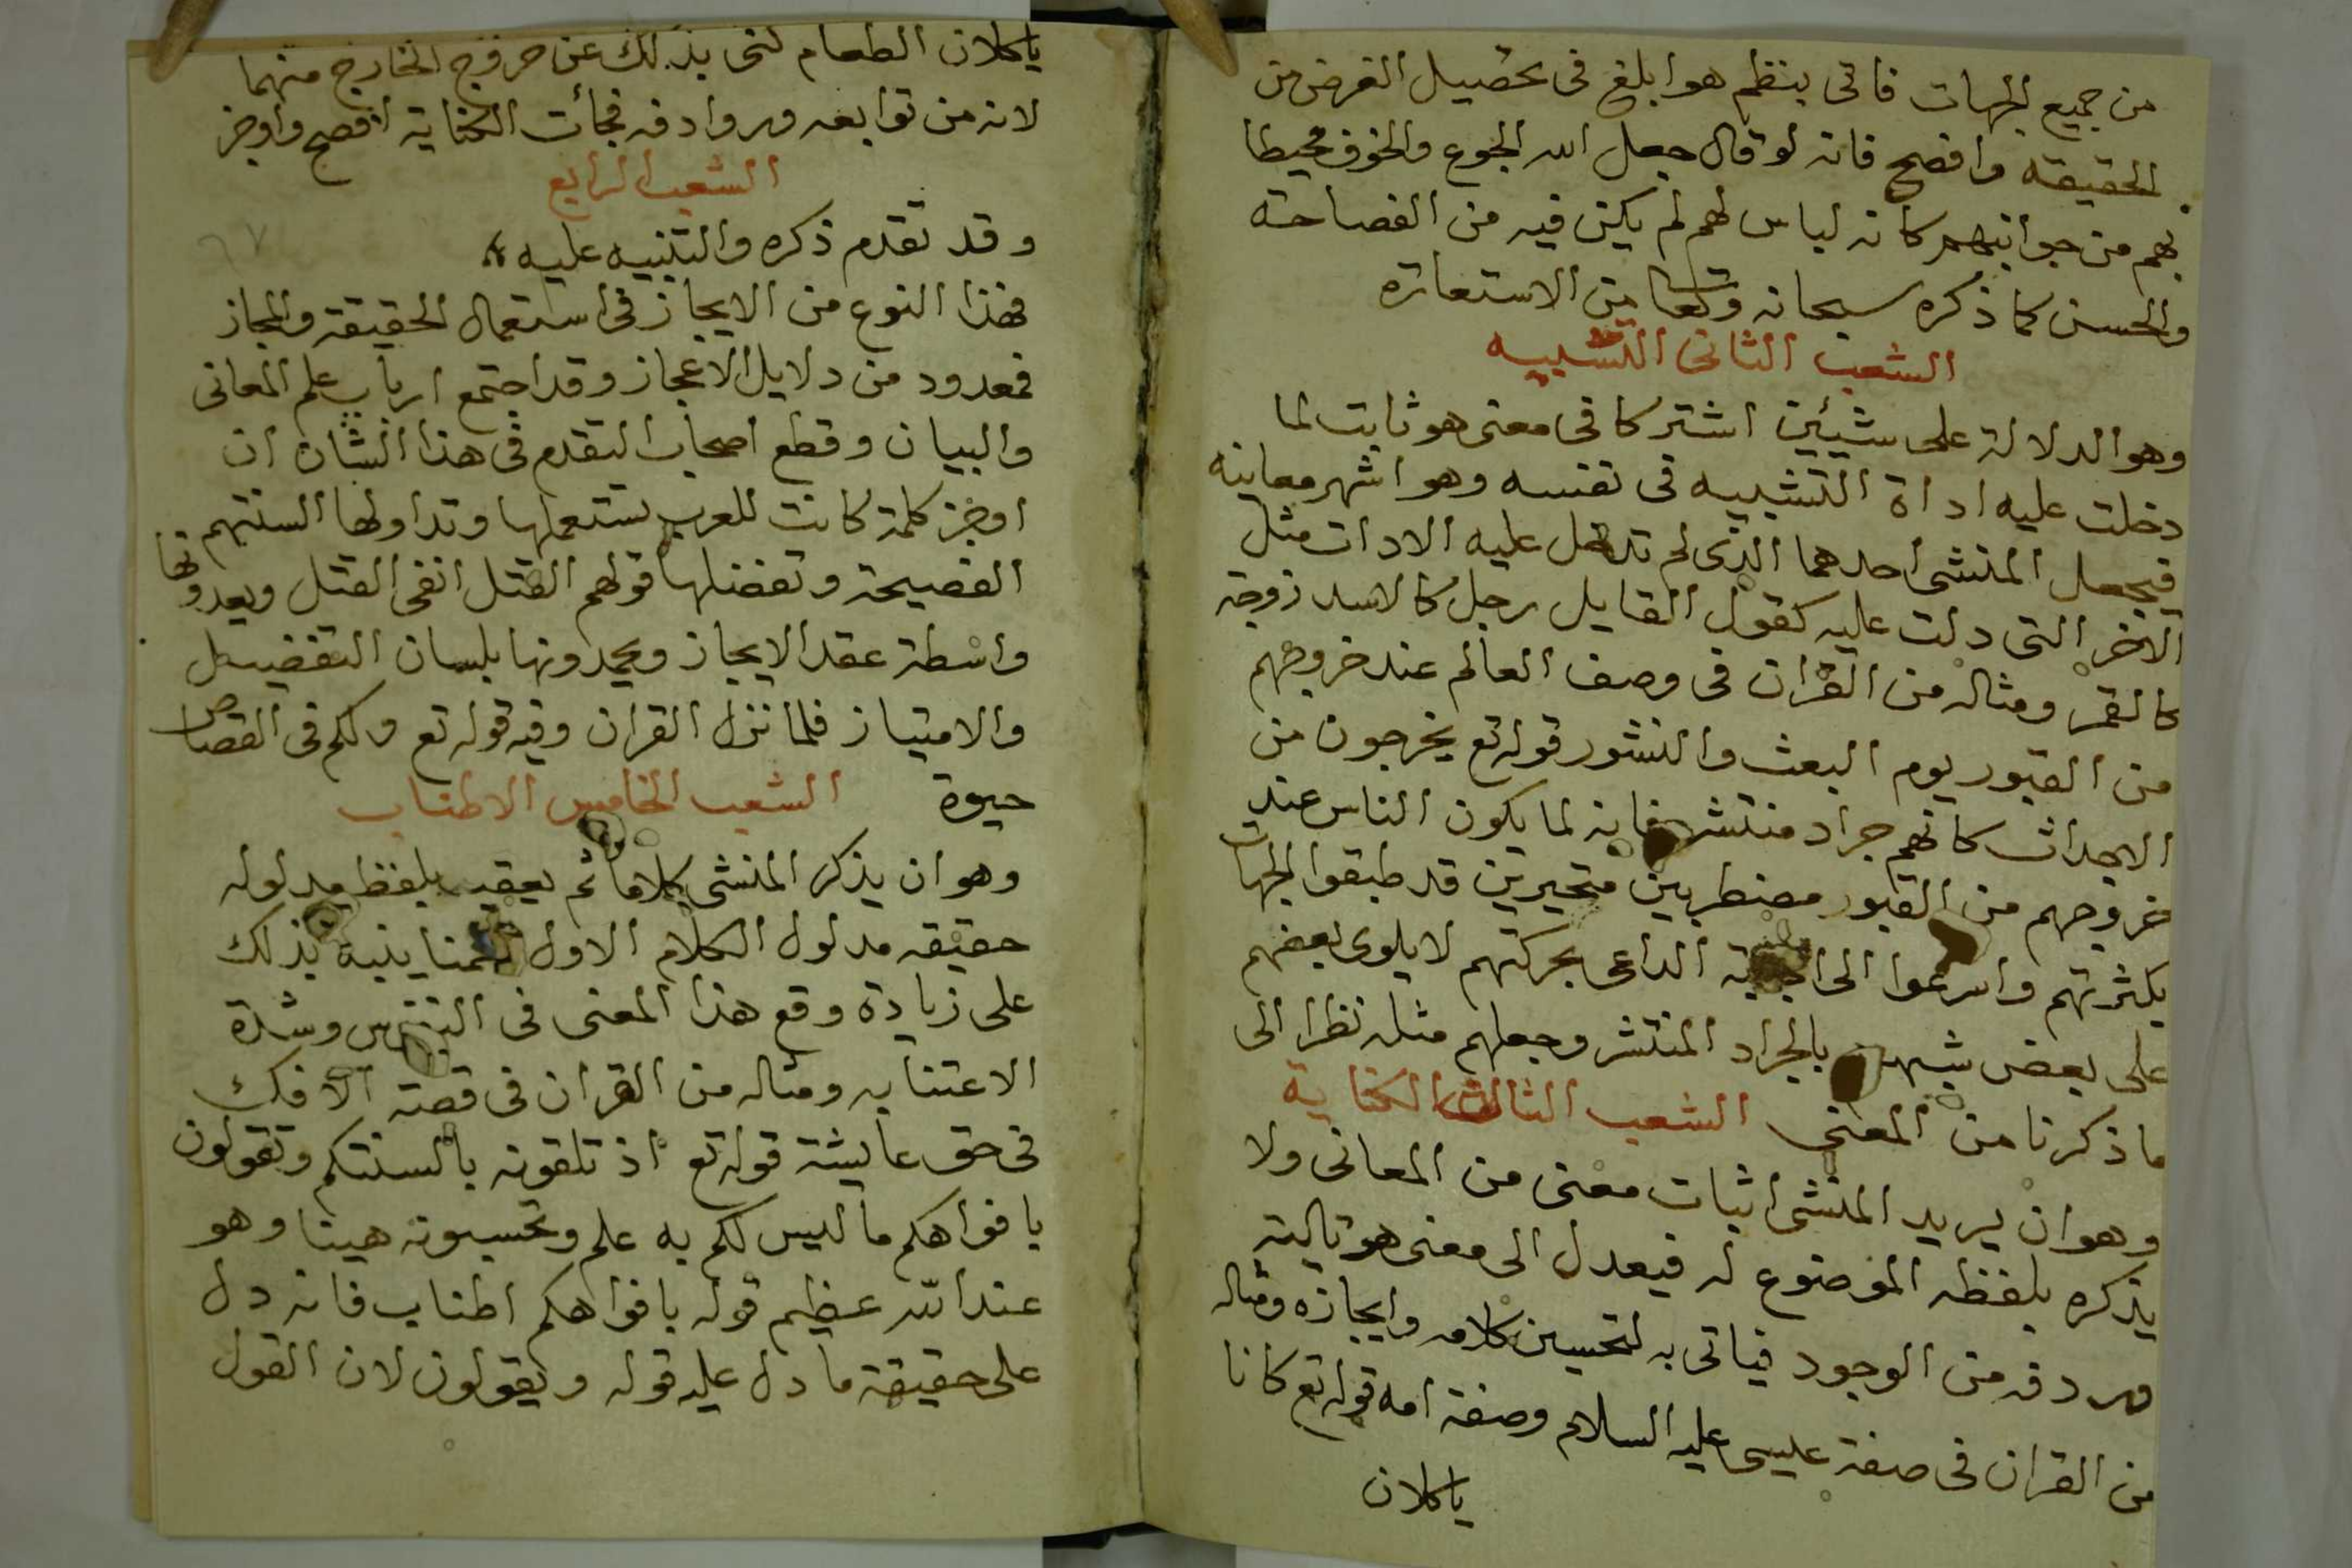 من جميع الجهات فاتى بنظم هو ابلغ فى تحصيل الغرض من
الحقيقة وافصح فانه لو قال جعل الله الجوع والخوف محيطا
بهم من جوانبهم كانه لباس لهم لم يكن فيه من الفصاحة
والحسن كما ذكره سبحانه وتعالى من الاستعارة
الشعب الثانى التشبيه
وهو الدلالة على شيئين اشتركا فى معنى هو ثابت لما
دخلت عليه اداة التشبيه فى نفسه وهو اشهر معاينه
فيجعل المنشى احدهما الذى لم تدخل عليه الادات مثل
الاخر التى دلت عليه كقول القايل رجل كالاسد زوجة
كالقمر ومثاله من القران فى وصف العالم عند خروجهم
من القبور يوم البعث والنشور قوله تع يخرجون من
الاجداث كانهم جراد منتشر فانه لما يكون الناس عند
خروجهم من القبور مضطربين متحيرين قد طبقوا الجهات
بكثرتهم واسرعوا الى اجابة الداعى بحركتهم لا يلوى بعضهم
على بعض شبههم بالجراد المنتشر وجعلهم مثله نظرا الى
ما ذكرنا من المعنى الشعب الثالث الكناية
وهو ان يريد المنشى اثبات معنى من المعانى ولا
يذكره بلفظه الموضوع له فيعدل الى معنى هو تاليه
وردفه من الوجود فياتى به لتحسين كلامه وايجازه ومثاله
من القران فى صفة عليسى عليه السلام وصفة امه قوله تع كانا
ياكلان
ياكلان الطعام كنى بذلك عن خروج الخارج منهما
لانه من توابعه وروادفه فجأت الكناية افصح واوجز
الشعب الرابع
وقد تقدم ذكره والتنبيه عليه
فهذا النوع من الايجاز فى استعمال الحقيقة والمجاز
فمعدود من دلايل الاعجاز وقد اجتمع ارباب علم المعانى
والبيان وقطع اصحاب التقدم فى هذا الشان ان
اوجز كلمة كانت للعرب تستعملها وتداولها السنتهم
الفصيحة وتفضلها قولهم القتل انفى القتل ويعدونها
واسطة عقد الايجاز ويحمدونها بلسان التفضيل
والامتياز فلما نزل القران وفيه قوله تع ولكم فى القصاص
حيوة الشعب الخامس الاطناب
وهو ان يذكر المنشى كلاما ثم يعقبه بلفظ مدلوله
حقيقه مدلول الكلام الاول ينبه بذلك
على زيادة وقع هذا المعنى فى النفس وشدة
الاعتنا به ومثاله من القران فى قصة الافك
فى حق عايشة قوله تع اذ تلقونه بالسنتكم وتقولون
بافواهكم ما ليس لكم به علم وتحسبونه هينا وهو
عند الله عظيم قوله بافواهكم اطناب فانه دل
على حقيقة ما دل عليه قوله ويقولون لان القول